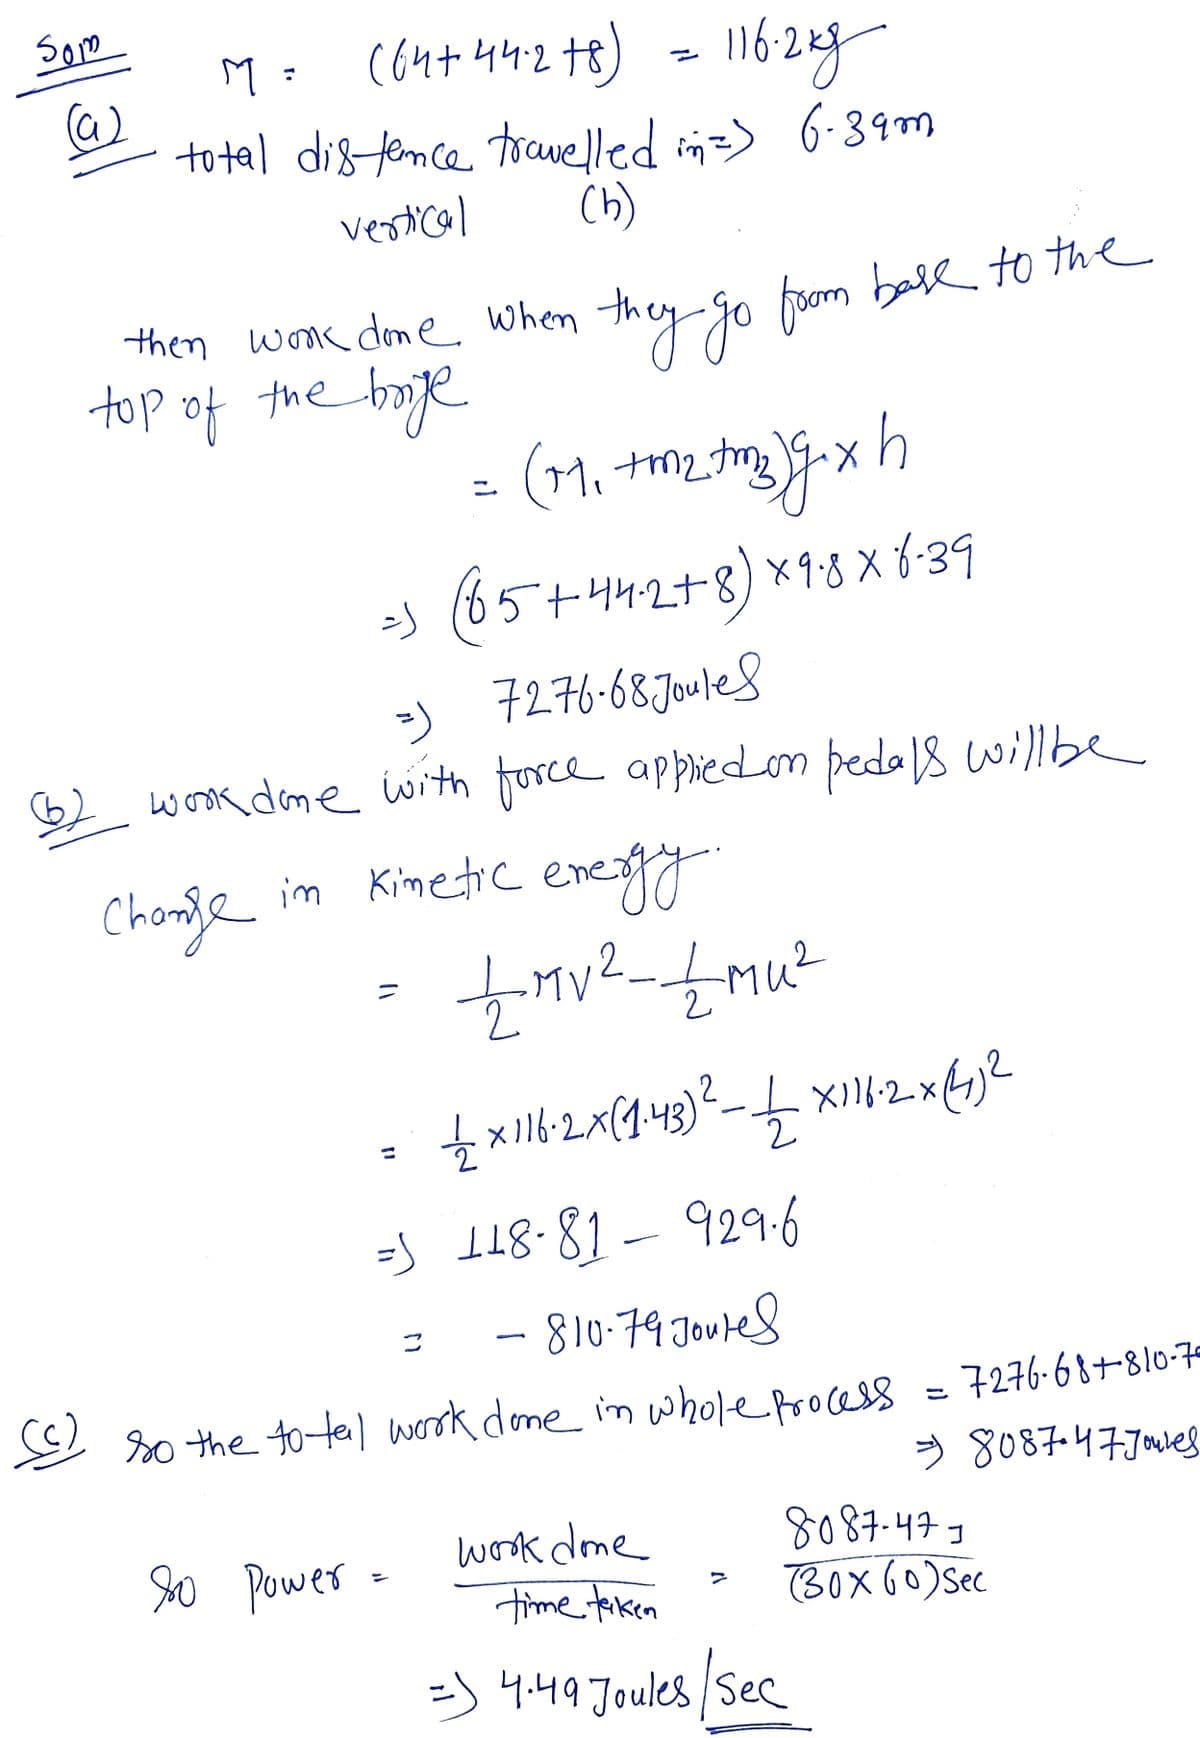 Soln
M = (64+44.2+8) = 116.2kg
(a)
total distence travelled in => 6.39m
vertical (h)
then work done when they go from base to the
top of the brije
= (M1+m2+m3)g×h
=> (65+44.2+8)×9.8×6.39
=> 7276.68 Joules
(b) work done with force applied on pedals will be
Change in Kinetic energy.
= 1/2 MV² - 1/2 MU²
= 1/2 ×116.2×(1.43)² - 1/2 ×116.2×(4)²
=> 118.81 - 929.6
= - 810.79 Joules
(c) So the total work done in whole Process = 7276.68+810.79
=> 8087.47 Joules
So Power = work done / time taken = 8087.47 J / (30×60) Sec
=> 4.49 Joules/Sec